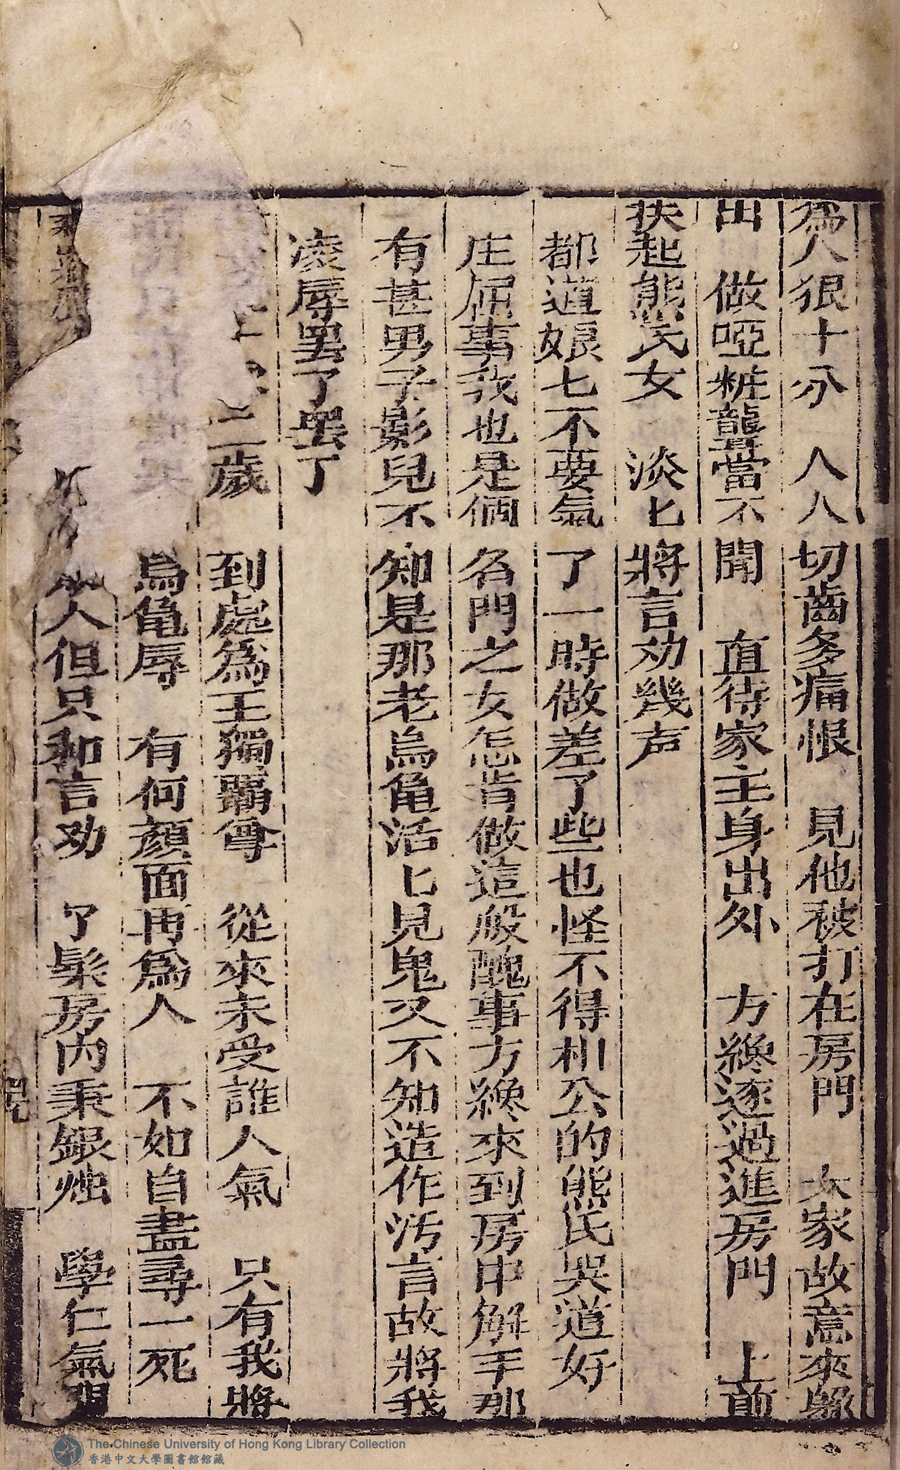 為人狠十分 人人切齒多痛恨 見他被打在房門 大家故意來躲
出 做啞粧聾當不聞 直待家主身出外 方纔逐過進房門 上前
扶起熊氏女 淡匕將言劝幾声
都道娘匕不要氣了一時做差了些也怪不得相公的熊氏哭道好
庄屈事我也是個名門之女怎肯做這般醜事方纔來到房中解手那
有甚男子影兒不知是那老烏龜活匕見鬼又不知造作汚言故將我
凌辱罢了罢了
二歲 到處為王獨覇尊 從來未受誰人氣 只有我將
烏龜辱 有何顏面再為人 不如自盡尋一死
人但只和言劝 了髮房內秉銀烛 學仁氣
The Chinese University of Hong Kong Library Collection
香港中文大學圖書館館藏